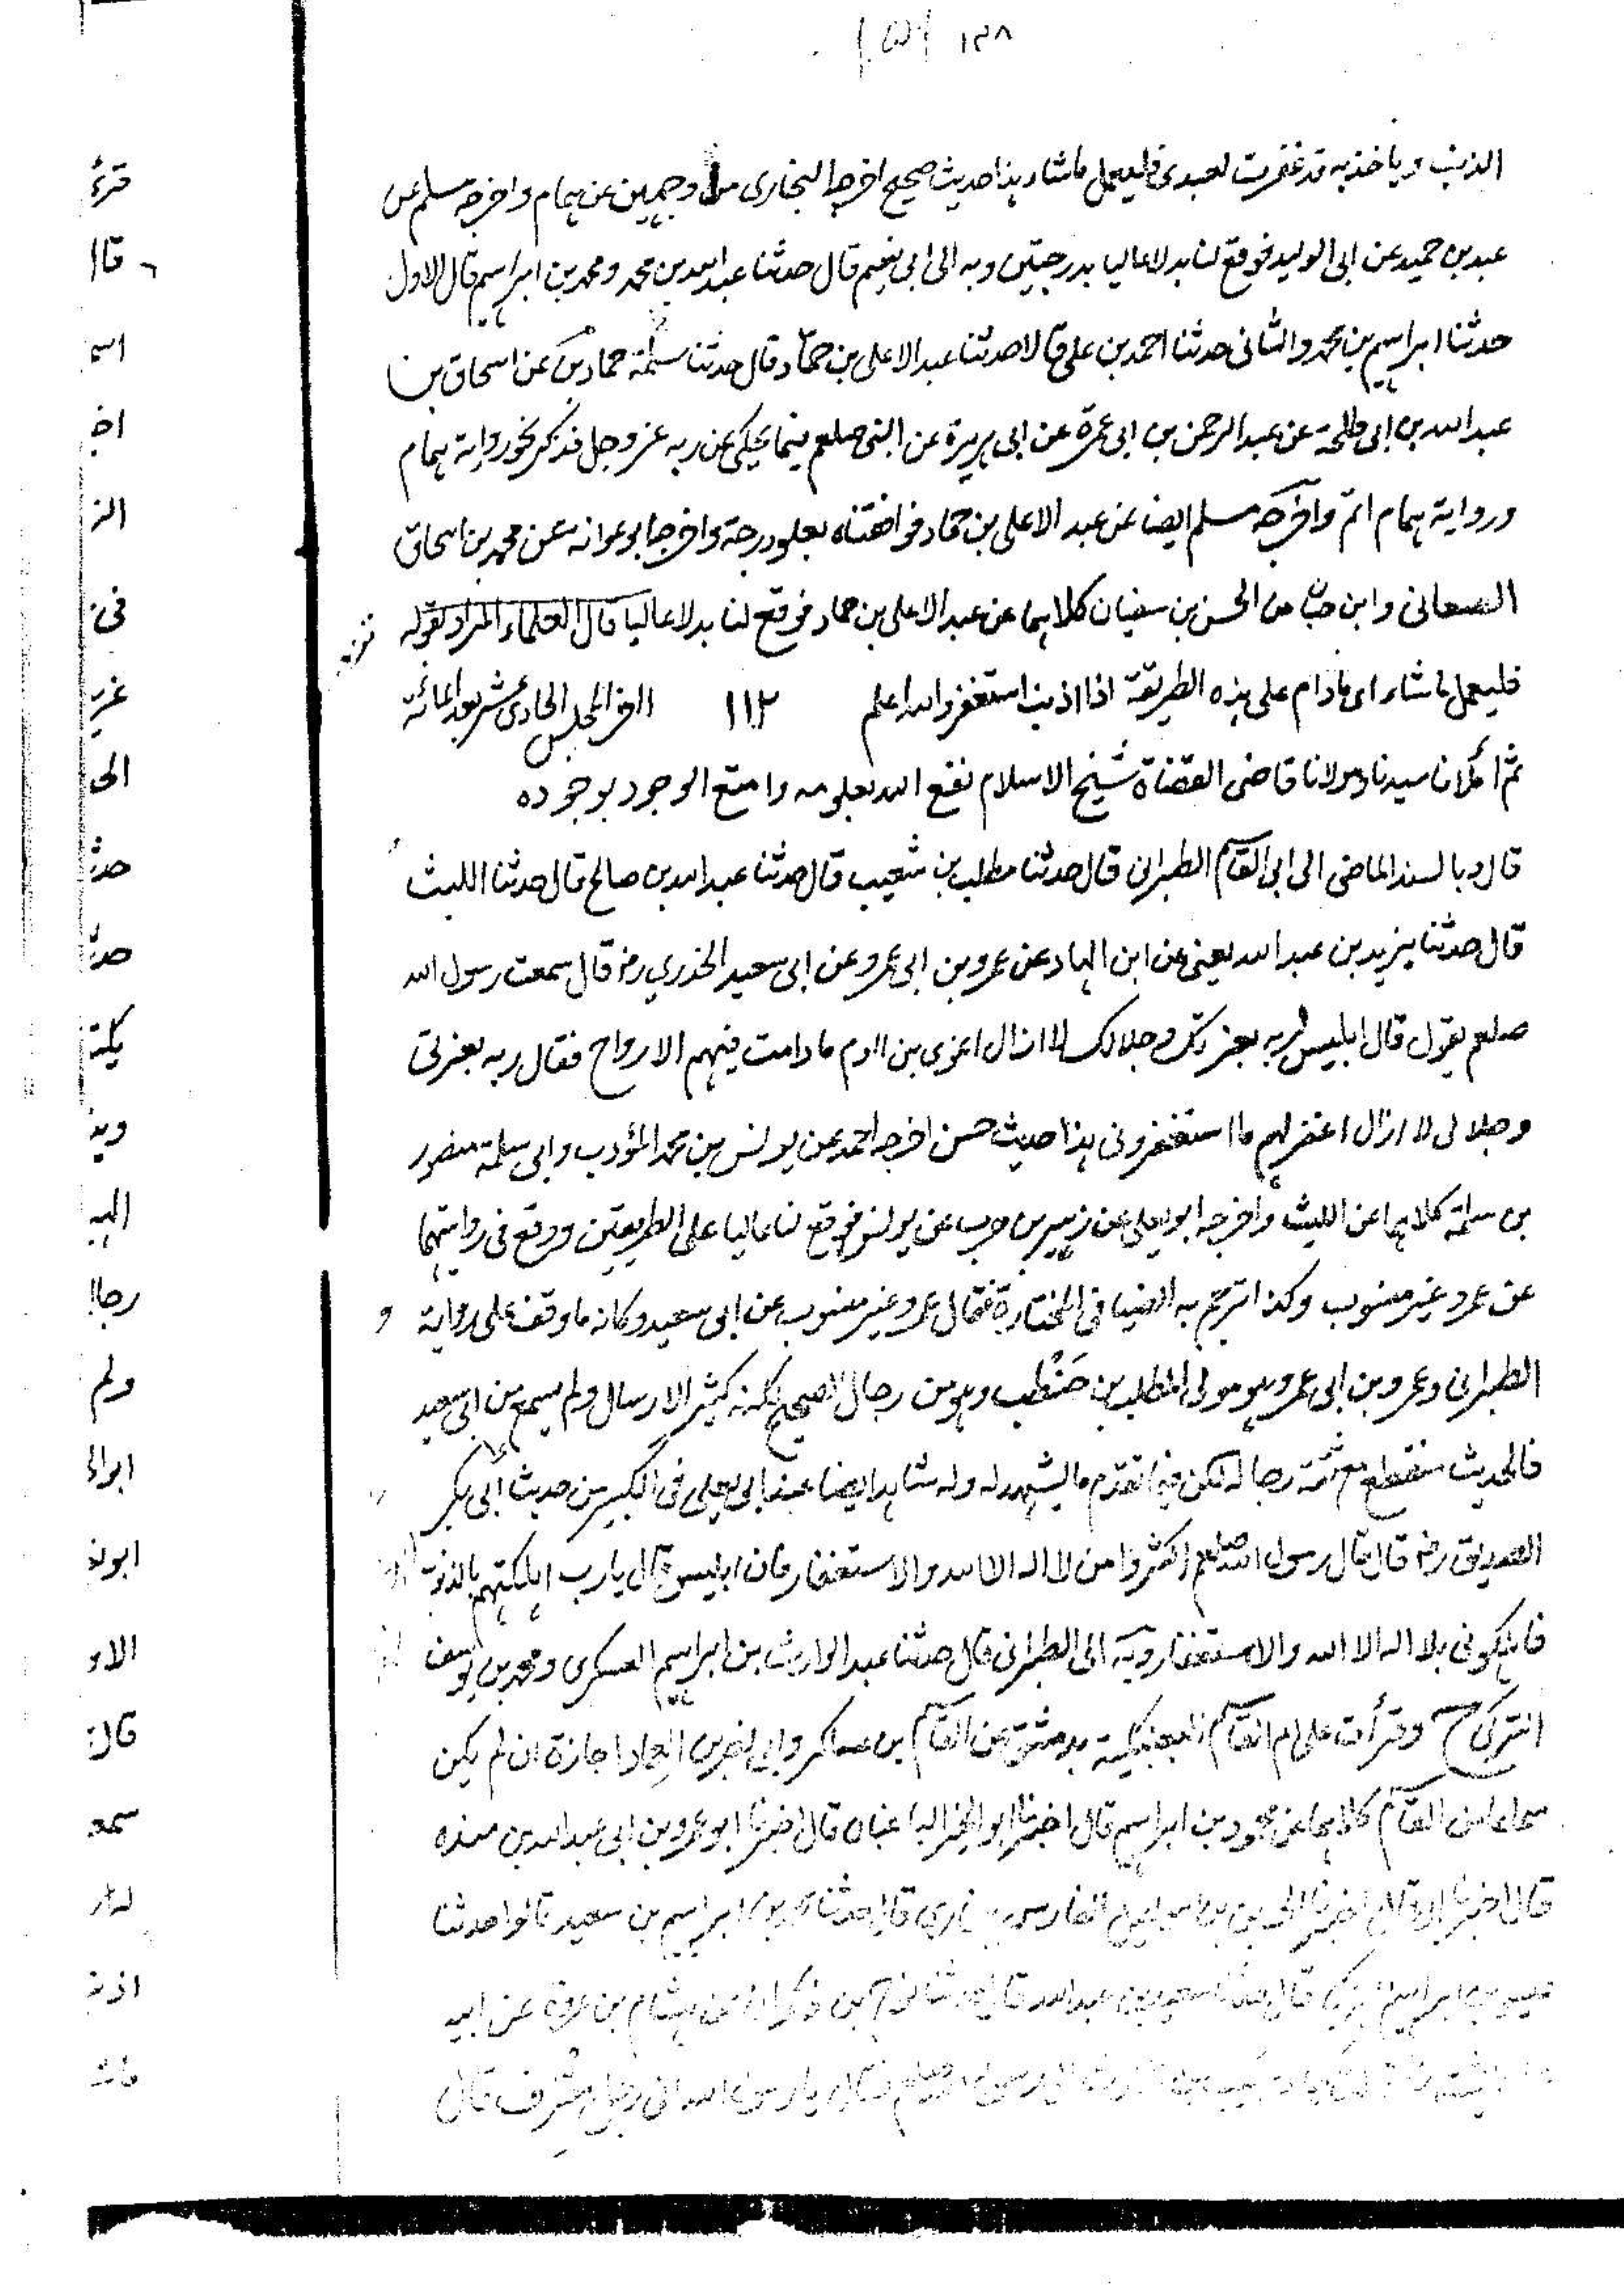 ١٣٨
الذنب وياخذ به قد غفرت لعبدى فليعمل ماشاء هذا حديث صحيح اخرجه البخارى من وجهين عن همام واخرجه مسلم عن
عبد بن حميد عن ابى الوليد فوقع لنا بدلا عاليا بدرجتين وبه الى ابى نعيم قال حدثنا عبد الله بن محمد ومحمد بن ابراهيم قال الاول
حدثنا ابراهيم بن محمد والثانى حدثنا احمد بن على قالا حدثنا عبد الاعلى بن حماد قال حدثنا حماد بن سلمة عن اسحاق بن
عبد الله بن ابى طلحة عن عبد الرحمن بن ابى عمرة عن ابى هريرة عن النبى صلعم فيما يحكى عن ربه عز وجل فذكر نحو رواية همام
ورواية همام اتم واخرجه مسلم ايضا عن عبد الاعلى بن حماد فوافقناه بعلو درجة واخرجه ابو عوانه عن محمد بن اسحاق
الصغانى وابن حبان عن الحسن بن سفيان كلاهما عن عبد الاعلى بن حماد فوقع لنا بدلا عاليا قال العلماء المراد بقوله
فليعمل ماشاء اى مادام على هذه الطريقة اذا اذنب استغفر والله اعلم ١١٢ اخر المجلس الحادى عشر بعد المائة
ثم املانا سيدنا ومولانا قاضى القضاة شيخ الاسلام نفع الله بعلومه وامتع الوجود بوجوده
قال وبالسند الماضى الى ابى القاسم الطبرانى قال حدثنا مطلب بن شعيب قال حدثنا عبد الله بن صالح قال حدثنا الليث
قال حدثنا يزيد بن عبد الله يعنى عن ابن الهاد عن عمرو بن ابى عمرو عن ابى سعيد الخدري رض قال سمعت رسول الله
صلعم يقول قال ابليس لربه بعزتك وجلالك لا ازال اغوى بنى ادم ما دامت فيهم الارواح فقال ربه بعزتى
وجلالى لا ازال اغفر لهم ما استغفرونى هذا حديث حسن اخرجه احمد عن يونس بن محمد المؤدب وابى سلمة منصور
بن سلمة كلاهما عن الليث واخرجه ابو يعلى عن زهير بن حرب عن يونس فوقع لنا عاليا على الطريقين ووقع فى روايتهما
عن عمرو غير منسوب وكذا ترجم به الضيا فى المختارة فقال عمرو غير منسوب عن ابى سعيد وكانه ما وقف على رواية
الطبرانى وعمرو بن ابى عمرو هو مولى المطلب بن حَنْطب وهو من رجال الصحيح لكنه كثير الارسال ولم يسمع من ابى سعيد
فالحديث منقطع مع ثقة رجاله لكن فيما تقدم ما يشهد له وله شاهد ايضا عند ابى يعلى فى الكبير من حديث ابى بكر
الصديق رض قال قال رسول الله صلعم اكثروا من لا اله الا الله والاستغفار فان ابليس قال يارب اهلكتهم بالذنوب
فاهلكونى بلا اله الا الله والاستغفار وبه الى الطبرانى قال حدثنا عبد الوارث بن ابراهيم العسكرى ومحمد بن يوسف
التركى ح وقرأت على ام القاسم البعلبكية بدمشق عن القاسم بن عساكر وابى نصر بن العماد اجازة ان لم يكن
سماعا من القاسم كلاهما عن محمود بن ابراهيم قال اخبرنا ابو الخير الباغبان قال اخبرنا ابو عمرو بن ابى عبد الله بن منده
قال اخبرنا ابى قال اخبرنا الحسين بن اسماعيل الفارسى قال حدثنا ابراهيم بن سعيد قالوا حدثنا
عيسى بن ابراهيم البركى قال حدثنا سعيد بن عبد الله قال حدثنا نوح بن ذكوان عن هشام بن عروة عن ابيه
الى رسول الله صلعم فقال يا رسول الله انى رجل مسرف قال
قرئ
قالا
اسم
اخ
الز
فى
غر
الى
حدث
حدث
ولم
ابو
الاو
قال
سمع